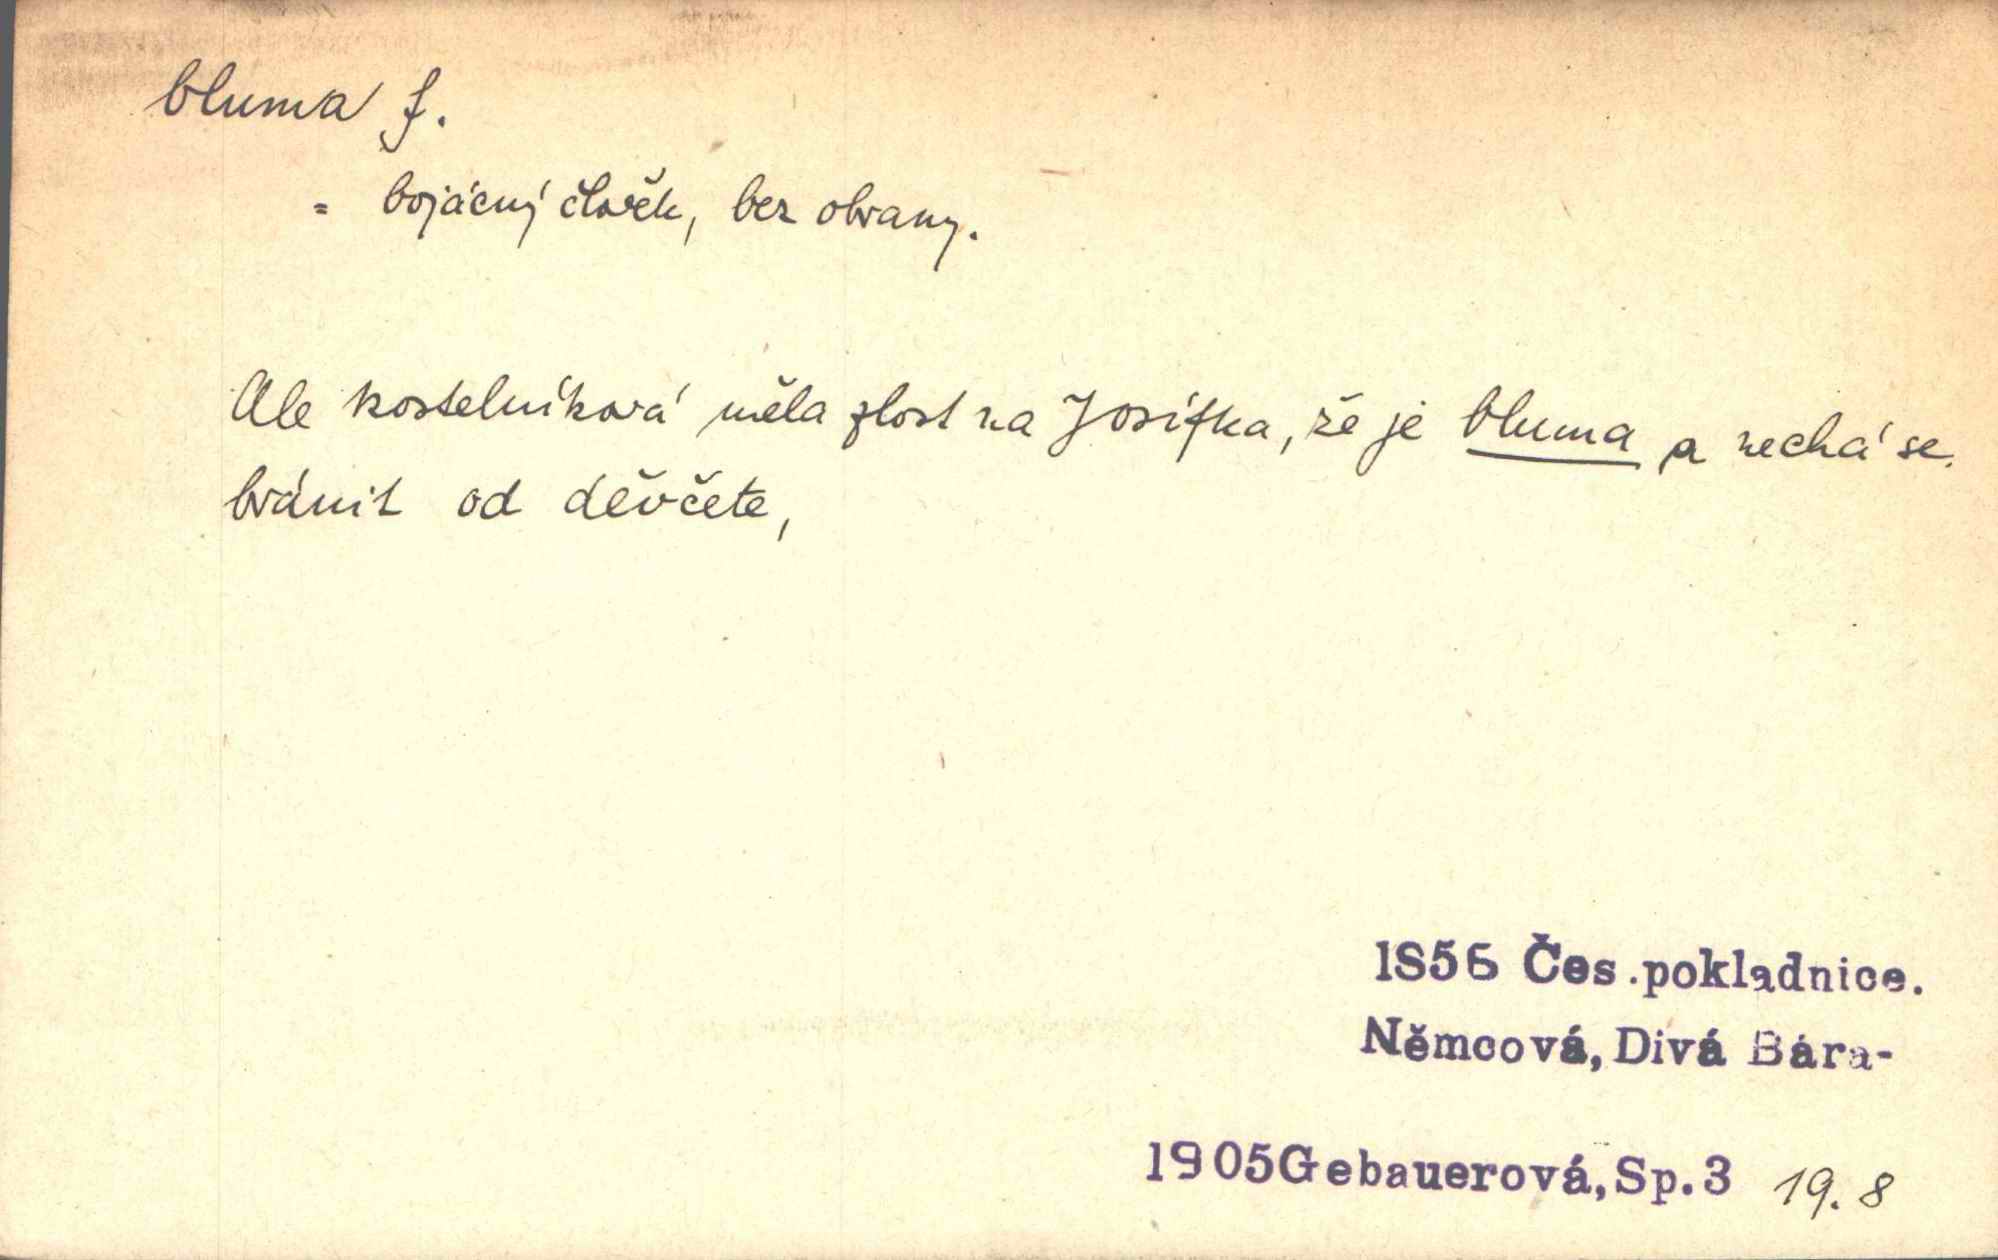 bluma f.
= bojácný člověk, bez obrany.
Ale kostelníková měla zlost na Josífka, že je bluma a nechá se
bránit od děvčete,
1856 Čes.pokladnice.
Němcová, Divá Bára-
1905Gebauerová,Sp.3 19.8